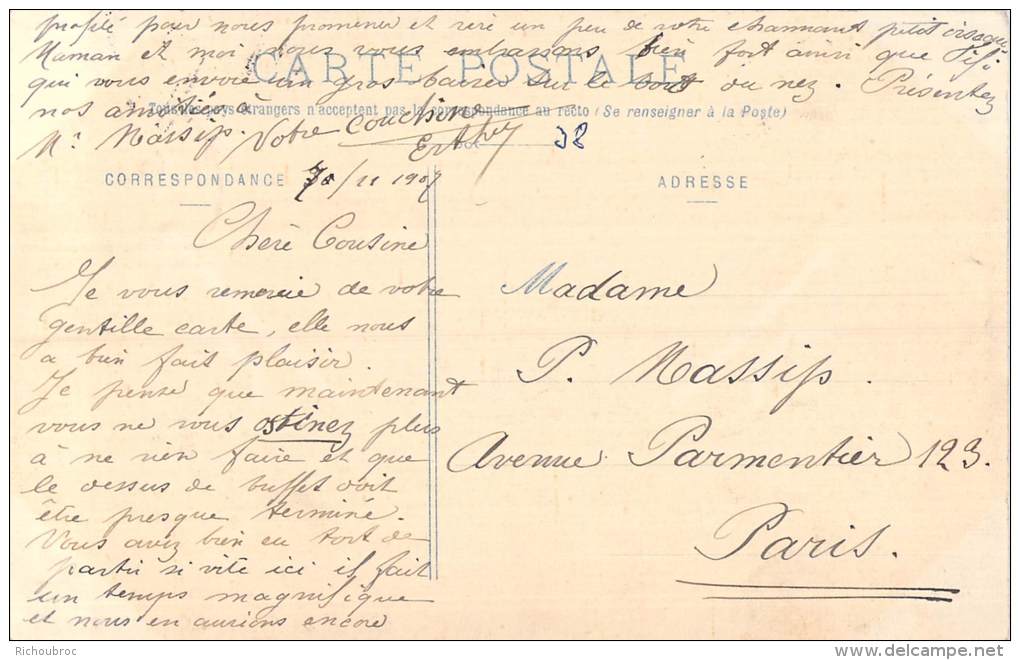 profité pour nous promener et rire un peu de votre charmant petit
Maman et moi nous vous embrassons bien fort ainsi que Fifi
qui vous envoie un gros baiser sur le bout du nez. Présentez
nos amitiés à
Mr Massip. Votre cousine
CARTE POSTALE
Tous les pays étrangers n'acceptent pas la correspondance au recto (Se renseigner à la Poste)
38
CORRESPONDANCE
/11 1907
ADRESSE
Chère Cousine
Je vous remercie de votre
gentille carte, elle nous
a bien fait plaisir.
Je pense que maintenant
vous ne vous ostinez plus
à ne rien faire et que
le dessus de buffet doit
être presque terminé.
Vous avez bien eu tort de
partir si vite ici il fait
un temps magnifique
et nous en aurions encore
Madame
P. Massip.
Avenue Parmentier 123.
Paris.
Richoubroc
delcampe.net